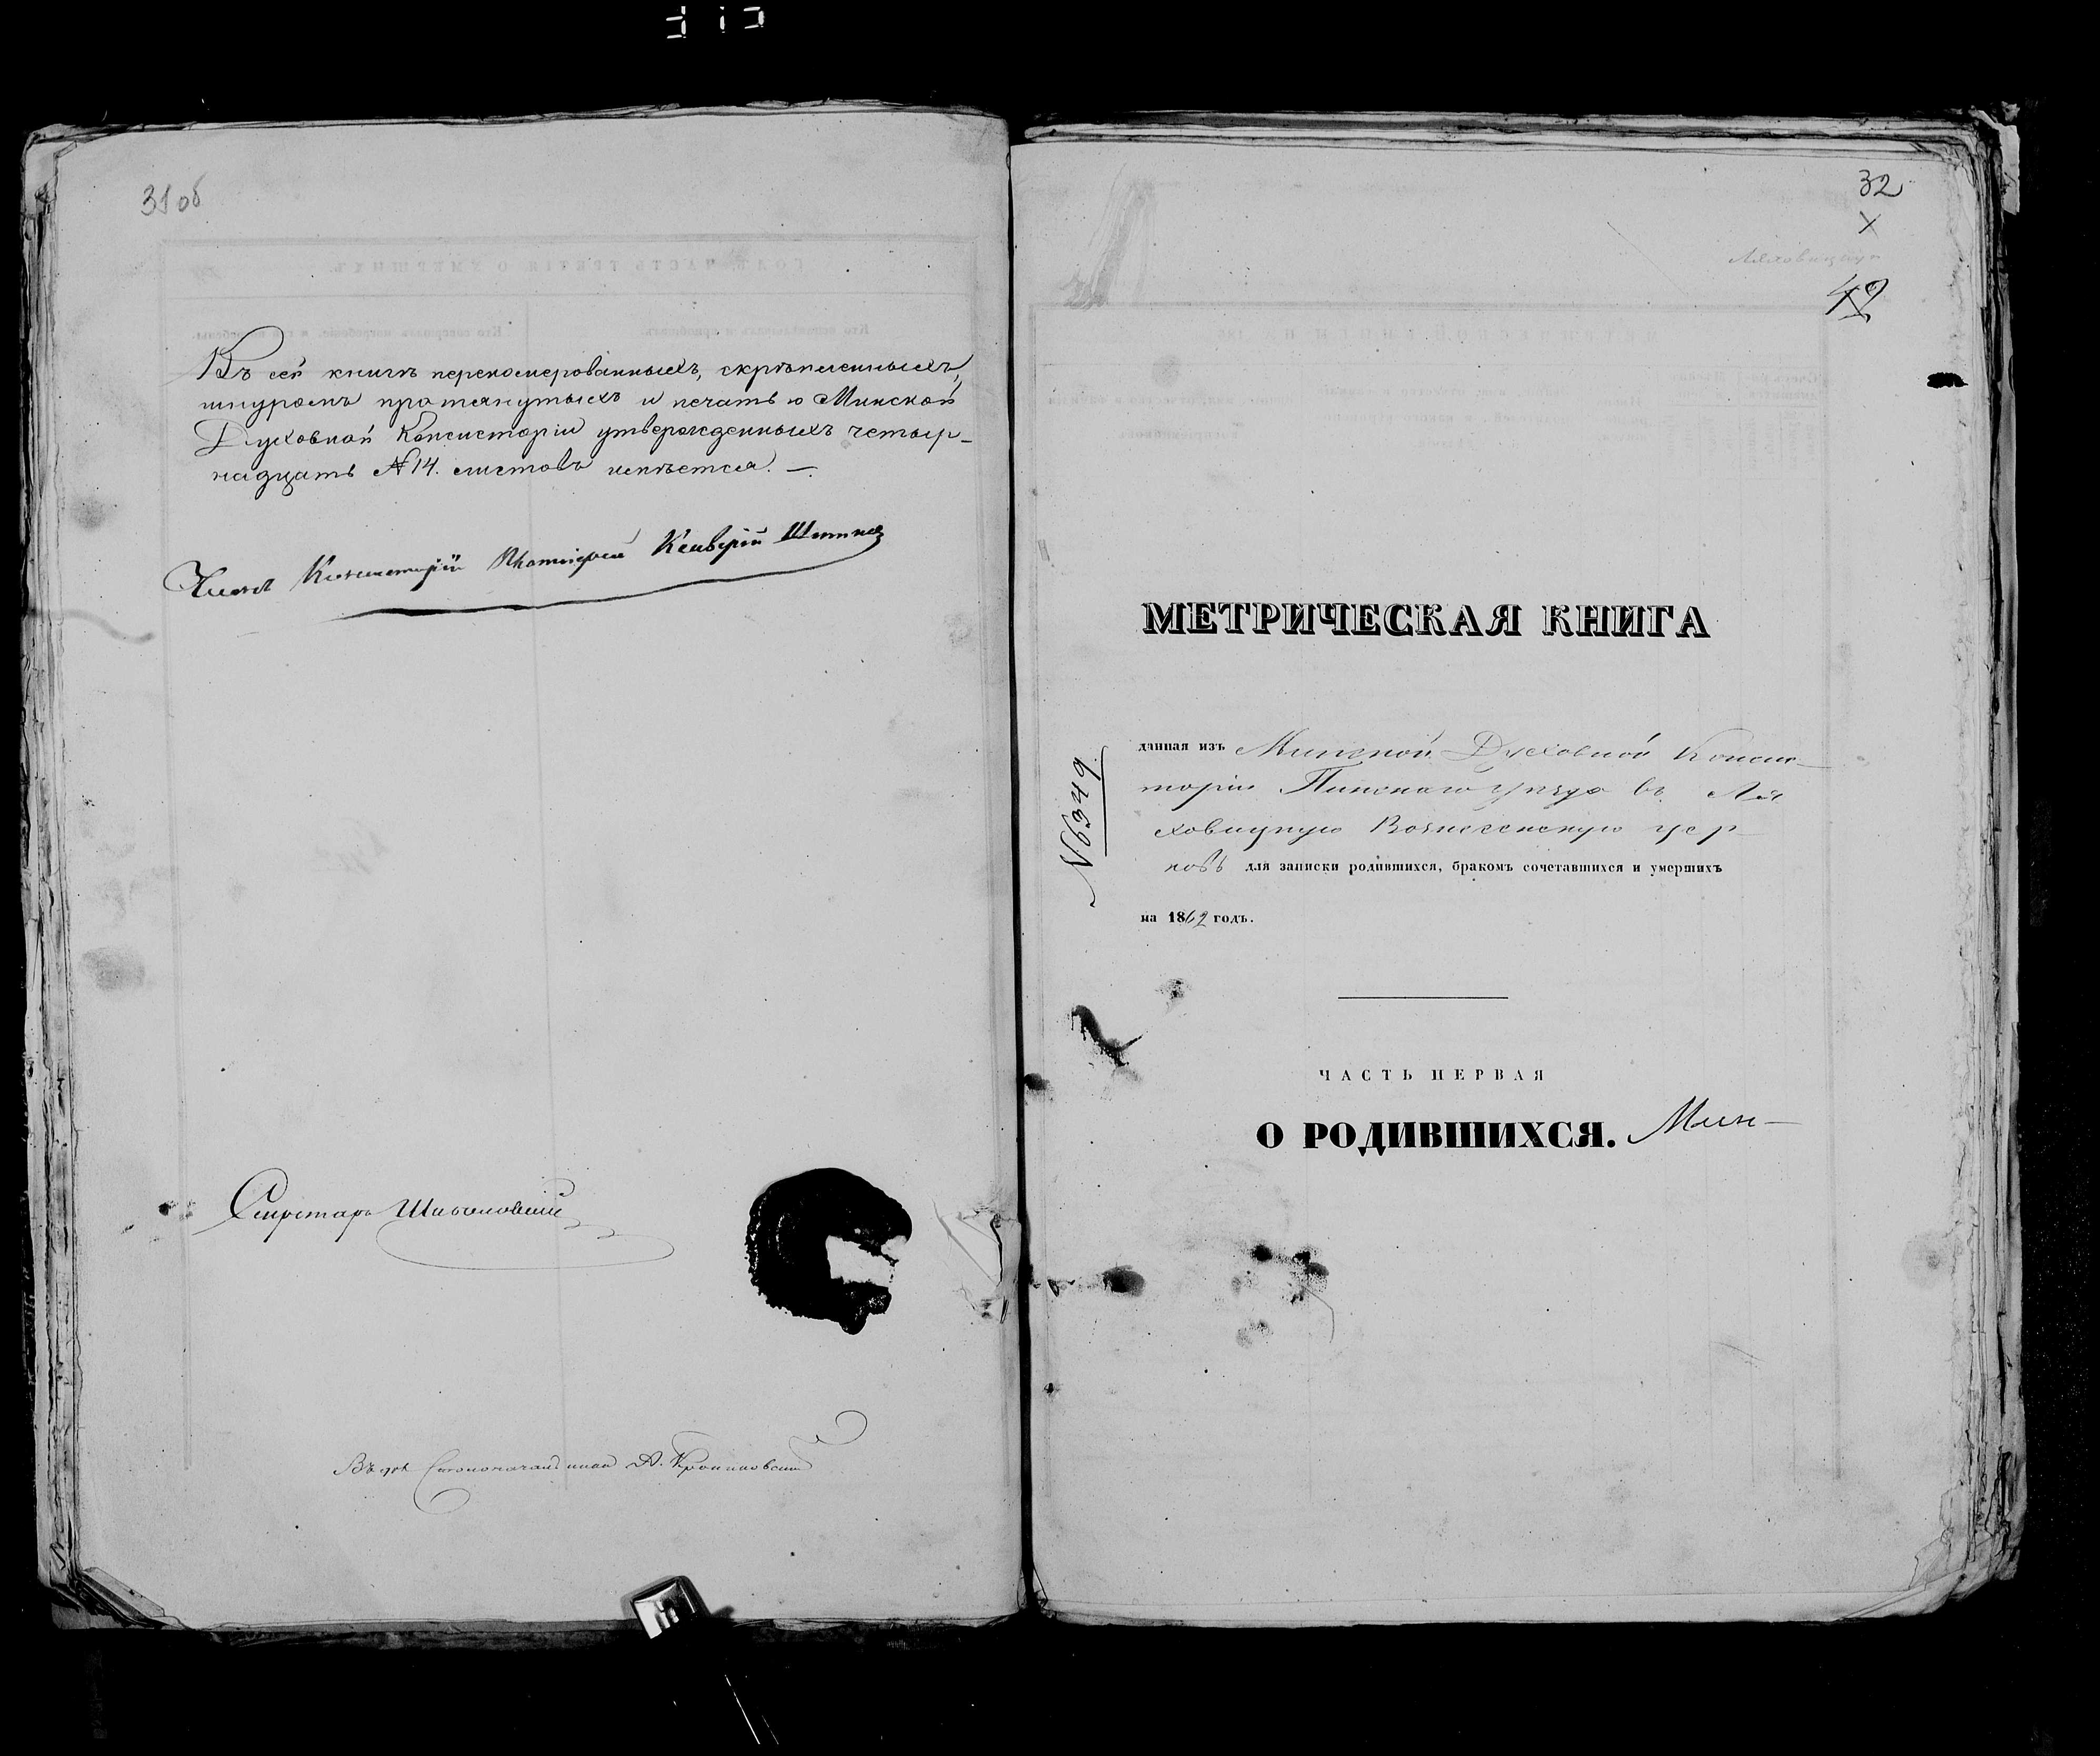 31 об
Въ сей книгѣ переномерованныхъ, скрѣпленныхъ,
шнуромъ протянутыхъ и печатью Минской
Духовной Консисторіи утвержденныхъ четыр-
надцать №14. листовъ имѣется. —
Членъ Консисторіи Протоіерей
Секретарь
Столоначальника А.
32
х
Ляховицкую
42
МЕТРИЧЕСКАЯ КНИГА
данная изъ Минской Духовной Консис-
торіи Пинскаго уѣзда въ Ля
ховицкую Вознесенскую цер
ковь для записки родившихся, бракомъ сочетавшихся и умершихъ
на 1862 годъ.
№6349.
ЧАСТЬ ПЕРВАЯ
О РОДИВШИХСЯ. Мин-